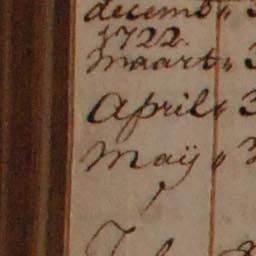 decemb„ 3
1722.
maart„ 3
April„ 3
Maÿ „ 3